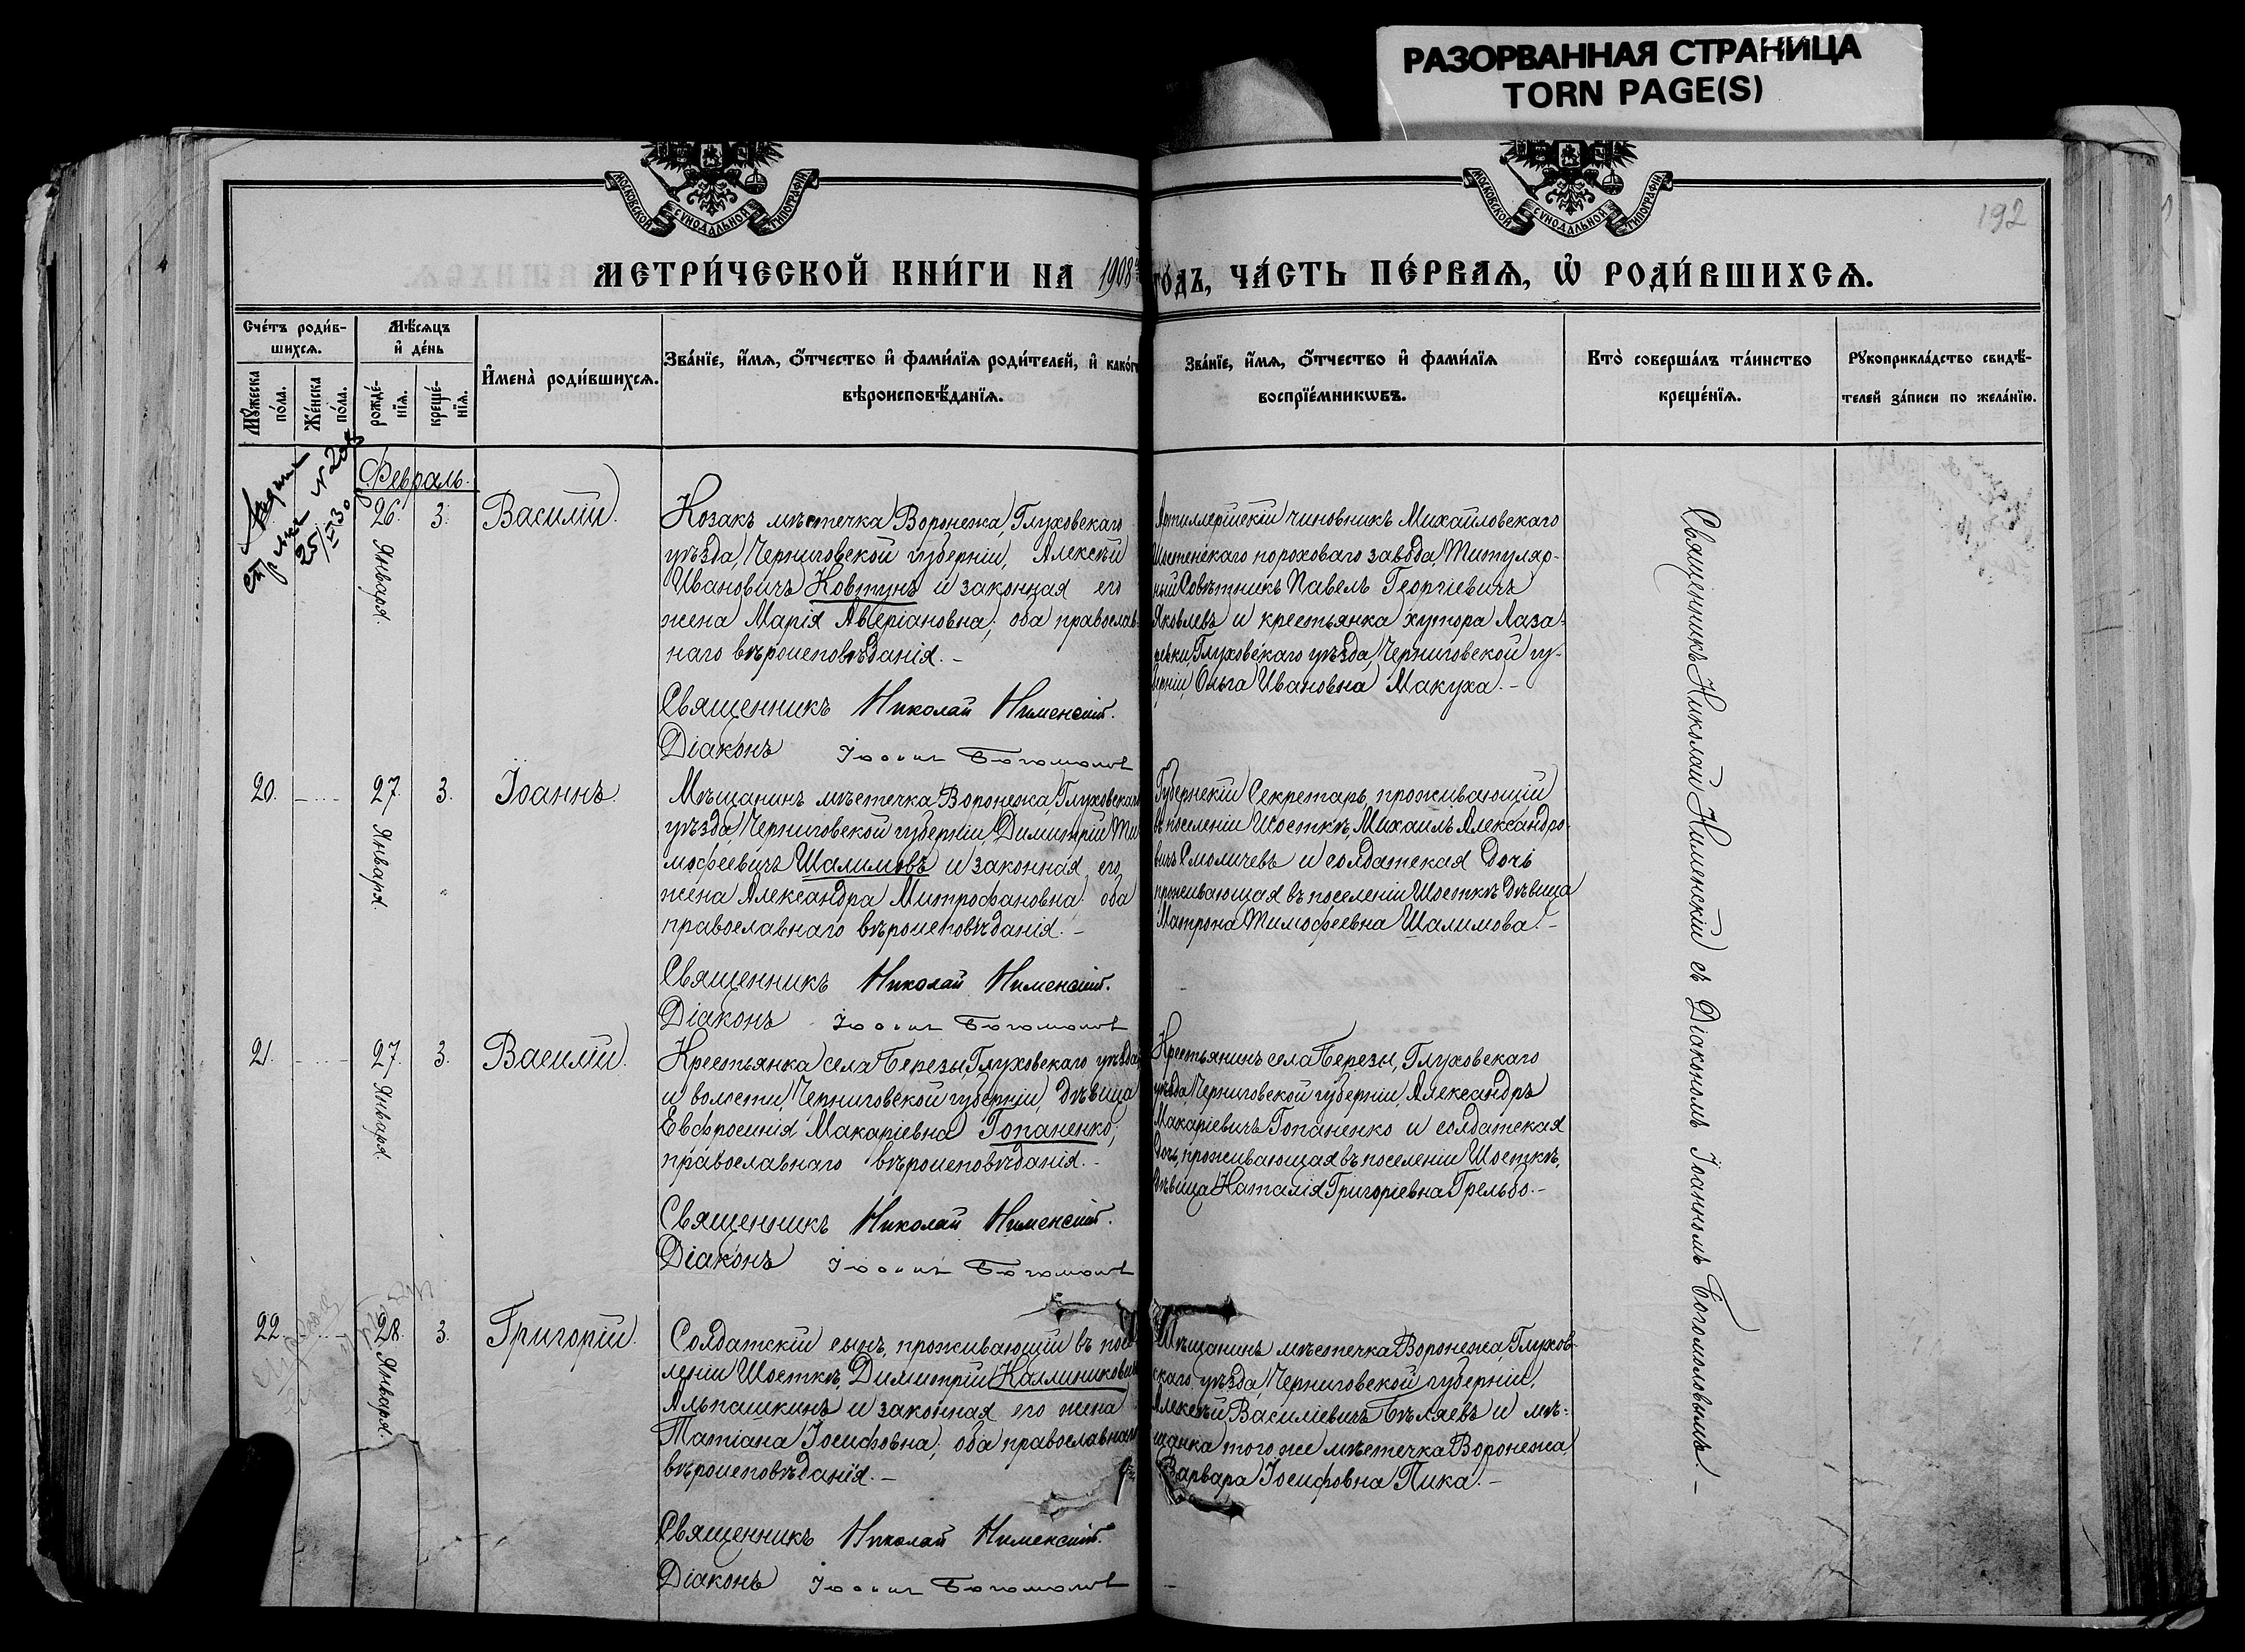 РАЗОРВАННАЯ СТРАНИЦА
TORN PAGE(S)
МОСКОВСКОЙ СѴНОДАЛЬНОЙ ТИПОГРАФІИ
МОСКОВСКОЙ СѴНОДАЛЬНОЙ ТИПОГРАФІИ
192
МЕТРИ́ЧЕСКОЙ КНИ́ГИ НА 1908 го́дъ, ЧА́СТЬ ПЕ́РВАѦ, Ѡ҆ РОДИ́ВШИХСѦ.
Сче́тъ роди́в-
шихсѧ.
Мꙋ́жеска по́ла.
Же́нска по́ла.
Мѣ́сѧцъ
и҆ де́нь
рожде́-
нїѧ.
креще́-
нїѧ.
И҆мена̀ роди́вшихсѧ.
Зва́нїе, и҆́мѧ, ѻ҆́тчество и҆ фами́лїѧ роди́телей, и҆ како́гѡ
вѣроисповѣ́данїѧ.
Зва́нїе, и҆́мѧ, ѻ҆́тчество и҆ фами́лїѧ
воспрїе́мникѡвъ.
Кто̀ соверша́лъ та́инство
креще́нїѧ.
Рꙋкоприкла́дство свидѣ́-
телей за́писи по жела́нїю.
Февраль.
26. Января. 3. Василій.
Козакъ мѣстечка Воронежа, Глуховскаго
уѣзда, Черниговской губерніи, Алексѣй
Ивановичъ Ковтунъ и законная его
жена Марія Аверіановна; оба православ-
наго вѣроисповѣданія. –
Священникъ Николай Нименскій.
Діаконъ Іоаннъ Богомоловъ
Артиллерійскій чиновникъ Михайловскаго
Шостенскаго пороховаго завода, Титуляр-
ный Совѣтникъ Павелъ Георгіевичъ
Яковлевъ и крестьянка хутора Лаза-
ревки, Глуховскаго уѣзда, Черниговской гу-
берніи, Ольга Ивановна Макуха. –
20. 27. Января. 3. Іоаннъ.
Мѣщанинъ мѣстечка Воронежа, Глуховскаго
уѣзда, Черниговской губерніи, Димитрій Ти-
мофеевичъ Шалимовъ и законная его
жена Александра Митрофановна; оба
православнаго вѣроисповѣданія. –
Священникъ Николай Нименскій.
Діаконъ Іоаннъ Богомоловъ
Губернскій Секретарь, проживающій
въ поселеніи Шосткѣ, Михаилъ Александро-
вичъ Смоличевъ и солдатская дочь
проживающая въ поселеніи Шосткѣ дѣвица
Матрона Тимофеевна Шалимова. –
21. 27. Января. 3. Василій.
Крестьянка села Березы, Глуховскаго уѣзда
и волости, Черниговской губерніи, дѣвица
Евфросинія Макаріевна Гопаненко;
православнаго вѣроисповѣданія. –
Священникъ Николай Нименскій.
Діаконъ Іоаннъ Богомоловъ
Крестьянинъ села Березы, Глуховскаго
уѣзда, Черниговской губерніи, Александръ
Макаріевичъ Гопаненко и солдатская
дочь, проживающая въ поселеніи Шосткѣ,
дѣвица Наталія Григоріевна Грельбо. –
22. 28. Января. 3. Григорій.
Солдатскій сынъ, проживающій въ посе-
леніи Шосткѣ, Димитрій Каллиниковичъ
Альпашкинъ и законная его жена
Татіана Іосифовна; оба православнаго
вѣроисповѣданія. –
Священникъ Николай Нименскій.
Діаконъ Іоаннъ Богомоловъ
Мѣщанинъ мѣстечка Воронежа, Глухов-
скаго уѣзда, Черниговской губерніи,
Алексѣй Василіевичъ Бѣляевъ и мѣ-
щанка того же мѣстечка Воронежа,
Варвара Іосифовна Пика. –
Священникъ Николай Нименскій съ Діакономъ Іоанномъ Богомоловымъ. –